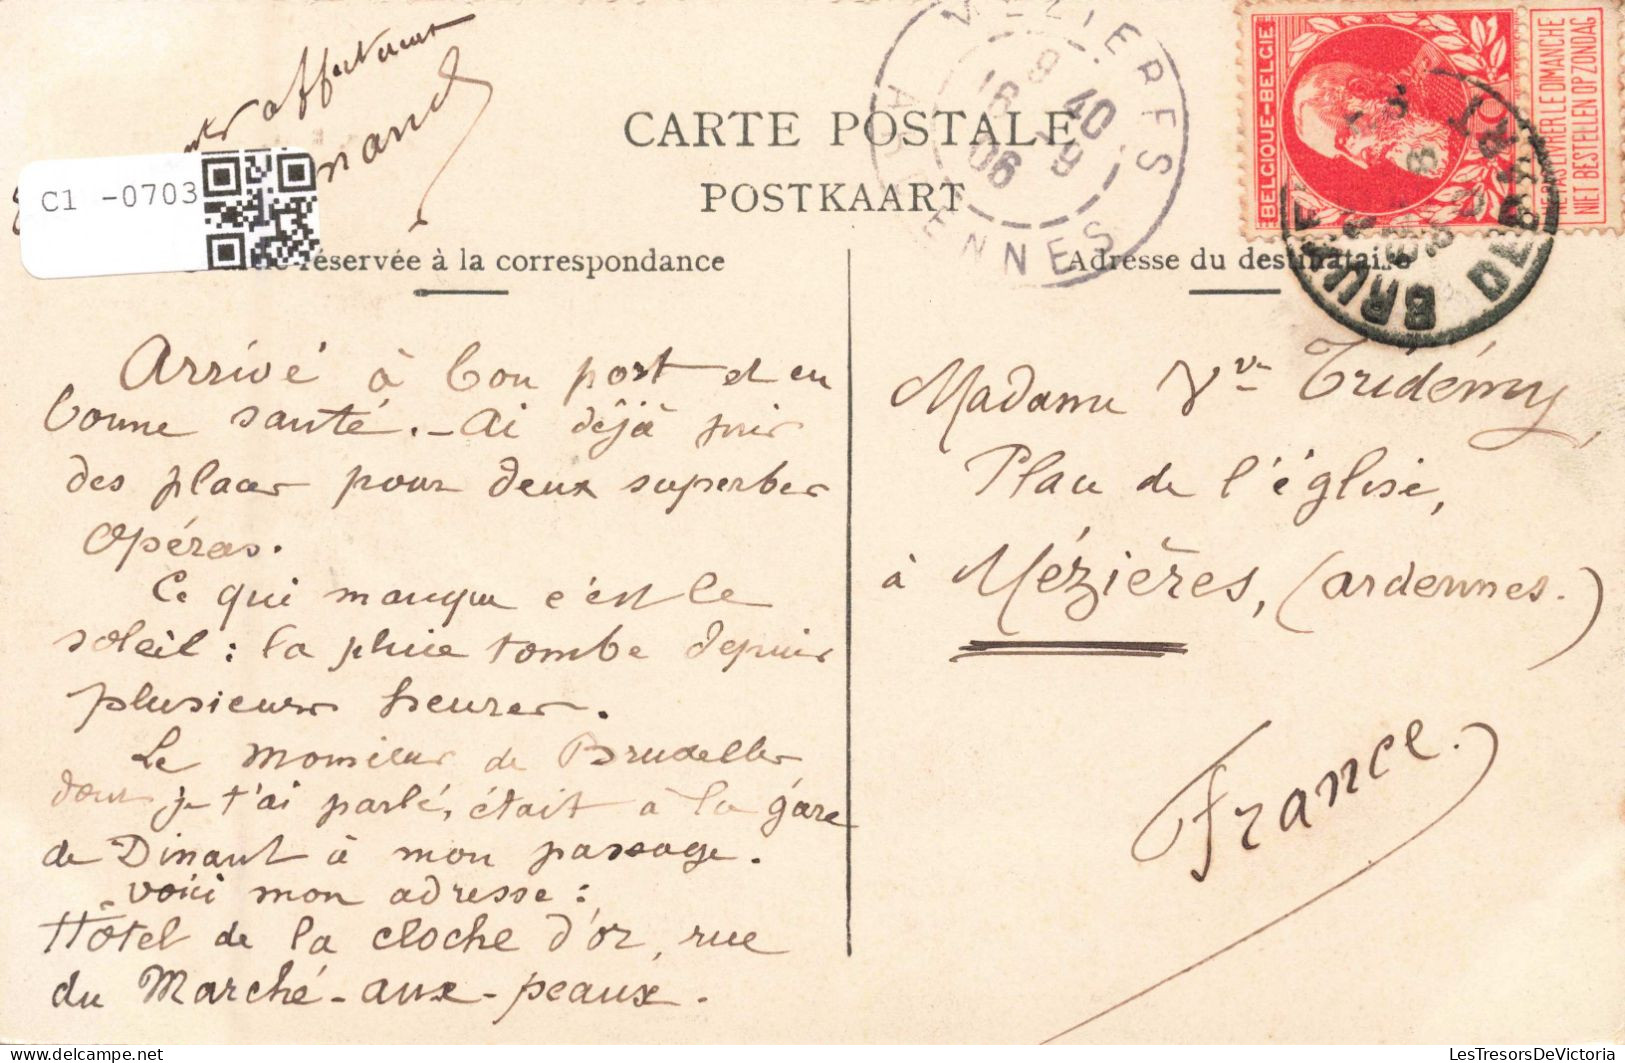 affectueux
nand
C1 -0703
CARTE POSTALE
POSTKAART
réservée à la correspondance
Adresse du destinataire
MÉZIERES
ARDENNES
8 40
18 9
06
BELGIQUE-BELGIE
NE PAS LIVRER LE DIMANCHE
NIET BESTELLEN OP ZONDAG
Arrivé à bon port et en
bonne santé. - Ai déjà pris
des places pour deux superbes
opéras.
Ce qui manque c'est le
soleil : la pluie tombe depuis
plusieurs heures.
Le Monsieur de Bruxelles
dont je t'ai parlé, était à la gare
de Dinant à mon passage.
Voici mon adresse :
Hôtel de la cloche d'or, rue
du Marché-aux-peaux.
Madame Vve Tridémy,
Place de l'église,
à Mézières, (Ardennes.)
France.
delcampe.net
LesTresorsDeVictoria